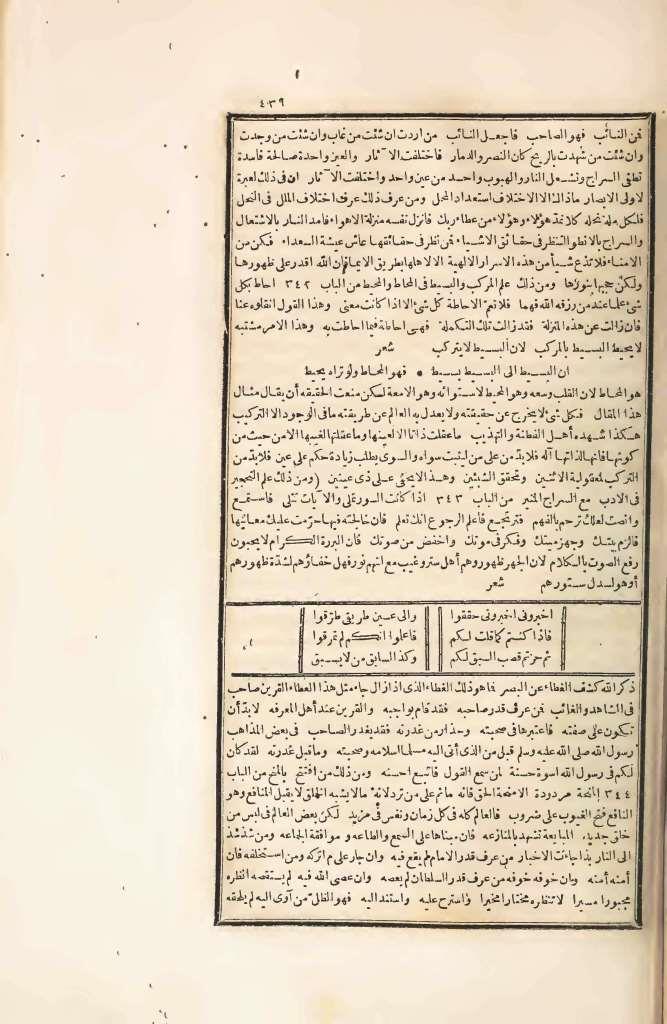 ٤٣٩
فمن النائب فهو الصاحب فاجعل النائب من اردت ان شئت من غاب وان شئت من وجدت
وان شئت من شهدت بالريح كان النصر والدمار فاختلفت الآثار والعين واحدة صالحة فاسدة
تطفئ السراج وتشعل النار والهبوب واحد من عين واحد واختلفت الآثار ان في ذلك لعبرة
لاولى الابصار ماذاك الا لاختلاف استعداد المحل ومن عرف ذلك عرف اختلاف الملل في النحل
فلكل ملة نحلة كلا نمد هؤلاء وهؤلاء من عطاء ربك فانزل نفسه منزلة الاهواء فامد النار بالاشتعال
والسراج بالانطفاء لتنظر في حقائق الاشياء فمن نظر في حقائقها عاش عيشة السعداء فكن من
الامناء فلا تذع شيأ من هذه الاسرار الالهية الا لاهلها بطريق الايماء فان الله اقدر على ظهورها
ولكن حجبها بنورها ومن ذلك علم المركب والبسيط في المحاط والمحيط من الباب ٣٤٢ احاط بكل
شئ علما عند من رزقه الله فهما فلا تعم الاحاطة كل شئ الا اذا كانت معنى وهذا القول انقلوه عنا
فان زالت عن هذه المنزلة فقد زالت تلك التكملة فهي احاطة فيما احاطت به وهذا الامر مشتبه
لا يحيط البسيط بالمركب لان البسيط لا يتركب شعر
ان البسيط الى البسيط بسيط • فهو المحاط ولو تراه يحيط
هو المحاط لان القلب وسعه وهو المحيط لاستوائه وهو الامعة لكن منعت الحقيقه أن يقال مثال
هذا المقال فكل شئ لا يخرج عن حقيقته ولا يعدل به العالم عن طريقته ما في الوجود الا التركيب
هكذا شهده أهل الفطنة والتهذيب ما عقلت ذاتا الا لعينها وما عقلتها لغيبها الا من حيث من
كونها فانها لذاتها آله فلا بد من على من ليثبت سواه والسوى يطلب زيادة حكم على عين فلا بد من
التركب لمعقولية الاثنين وتحقق الشيئين وهذا لا يخفى على ذى عينين (ومن ذلك علم التصبير
في الادب مع السراج المنير من الباب ٣٤٣ اذا كانت السور تملى والآيات تتلى فاستمع
وانصت لعلك ترحم بالفهم فترتجع فاعلم الرجوع انك تعلم فان خالجته فيها حرمت عليك معانيها
فالزم بيتك وجهز ميتك وفكر في موتك واخفض من صوتك فان البررة الكرام لا يحبون
رفع الصوت بالكلام لان الجهر ظهور وهم أهل ستر وغيب مع انهم نور فهل خفاؤهم لشدة ظهورهم
أو هو لسدل ستورهم شعر
اخبرونى اخبرونى حققوا والى عسين طريقى طرقوا
فاذا كنتم كما قلت لكم فاعلموا انكم لم تفرقوا
ثم حزتم قصب السبق لكم وكذا السابق من لا يسبق
ذكر الله كشف الغطاء عن البصر فما هو ذلك الغطاء الذى اذا زال جاء مثل هذا العطاء القرين صاحب
في الشاهد والغائب فمن عرف قدر صاحبه فقد قام بواجبه والقرين عند أهل المعرفه لا بد أن
تكون على صفته فاعتبرها في صحبته وحذار من غدرته فقد يغدر الصاحب في بعض المذاهب
رسول الله صلى الله عليه وسلم قبل من الذى أتى اليه مسلما اسلامه وصحبته وما قبل غدرته لقد كان
لكم في رسول الله اسوة حسنة لمن سمع القول فاتبع احسنه ومن ذلك من افتتح بالمنح من الباب
٣٤٤ المنحة مردودة الا منحة الحق فانه ماثم على من ترد لانه مالا يشبه الخلق لا يقبل المنافع وهو
النافع فتح الغيوب على ضروب فالعالم كله في كل زمان ونفس في مزيد لكن بعض العالم في لبس من
خلق جديد المبايعة تشهد بالمنازعه فان مبناها على السمع والطاعه وموافقة الجماعه ومن شذ شذ
الى النار بذا جاءت الاخبار من عرف قدر الامام لم يقع فيه وان جار على م اتركه ومن استخلفه فان
أمنه أمنه وان خوفه خوفه من عرف قدر السلطان لم يعصه وان عصى الله فيه لم يستقصه انظره
مجبورا مسيرا لا تنظره مختارا مخيرا واسترح عليه واستند اليه فهو الظل من آوى اليه لم يلحقه